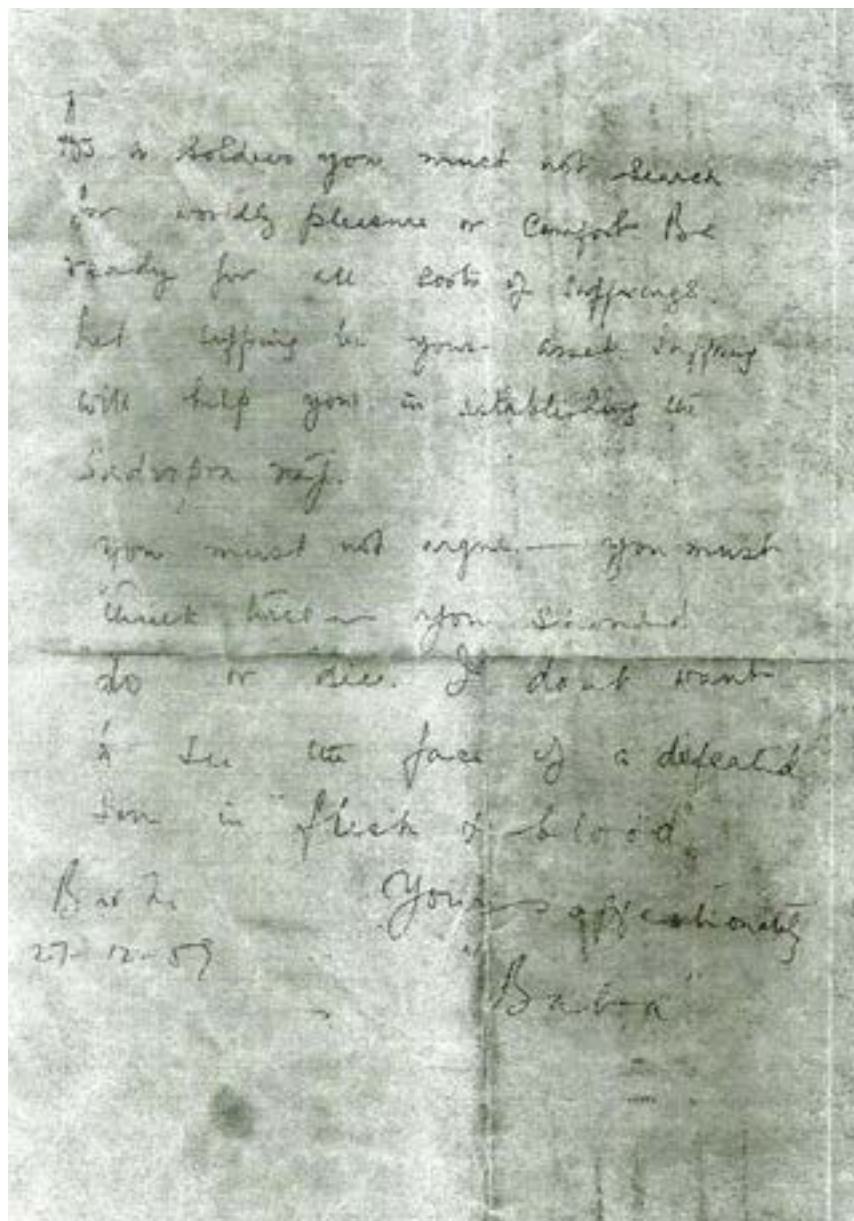 As a soldier you must not search
for worldly pleasure or comfort. Be
ready for all sorts of sufferings.
Let suffering be your asset. Suffering
will help you in establishing the
Sadvipra raj.
You must not argue — you must
think twice you should
do or die. I don't want
to see the face of a defeated
son in "flesh & blood".
Yours affectionately
27-12-59
"Baba"